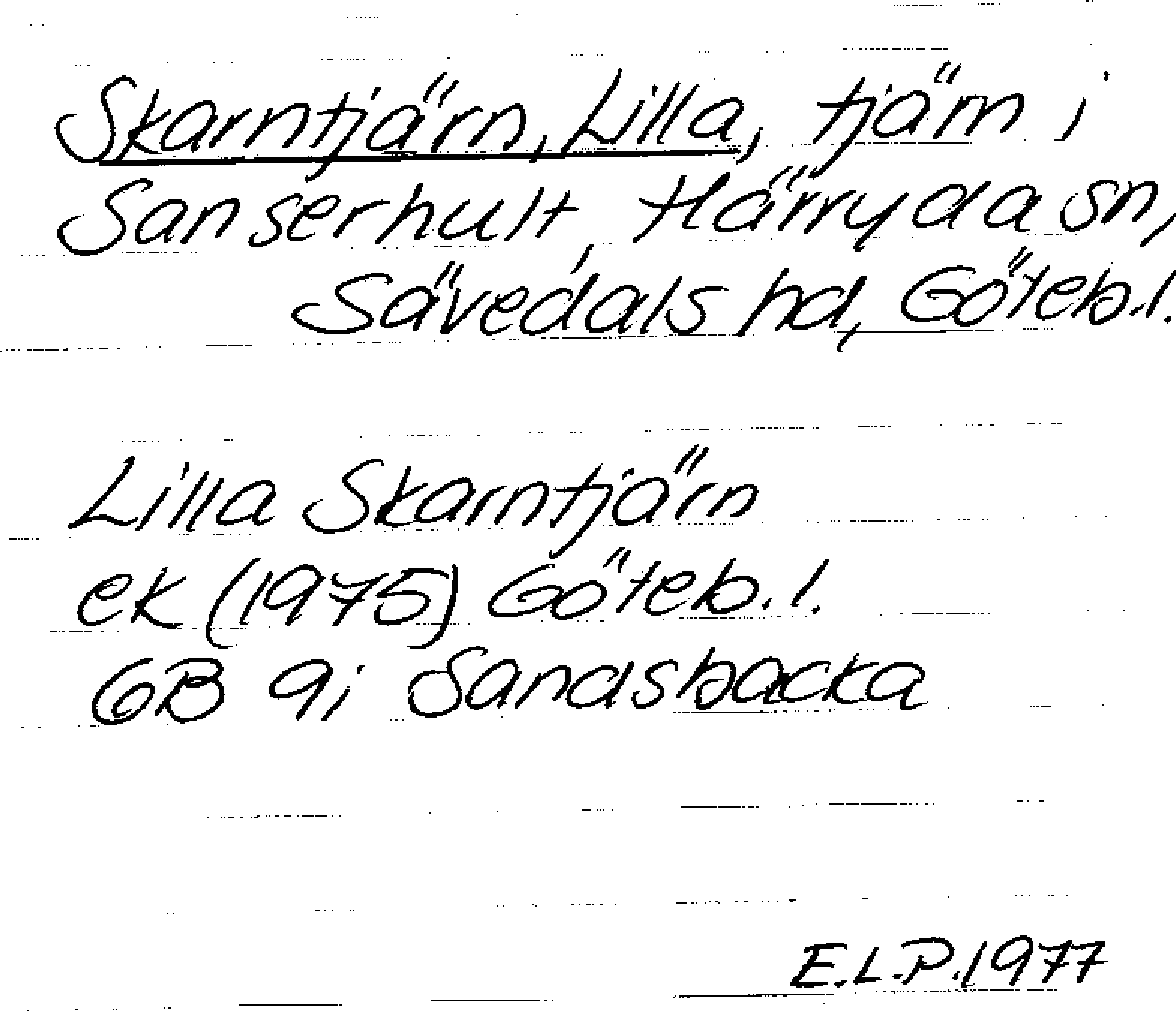 Skarntjärn, Lilla, tjärn i
Sanserhult, Härryda sn,
Sävedals hd, Göteb.l.
Lilla Skarntjärn
ek (1975) Göteb.l.
GB 9i Sandsbacka
E.L.P. 1977